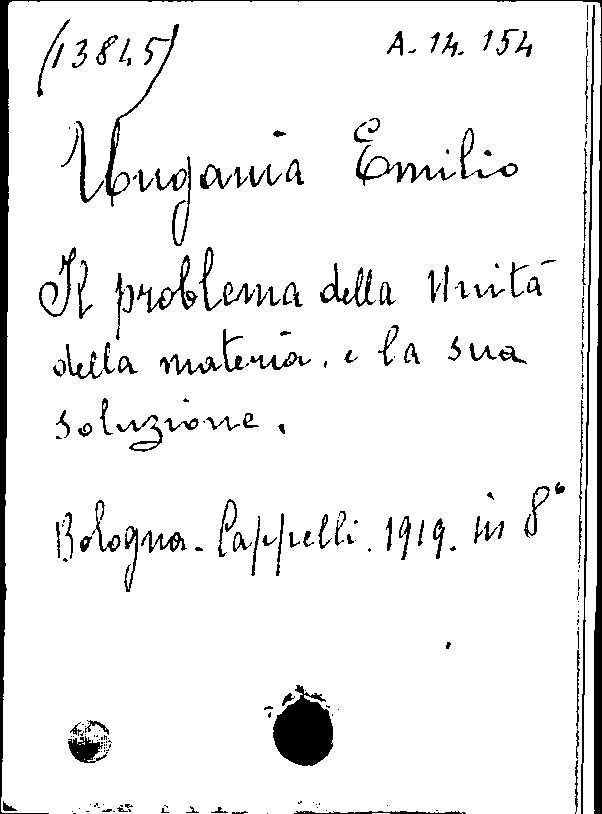 (13845) A. 14. 154
Ungania Emilio
Il problema della Unità
della materia. e la sua
soluzione.
Bologna - Cappelli. 1919. in 8°